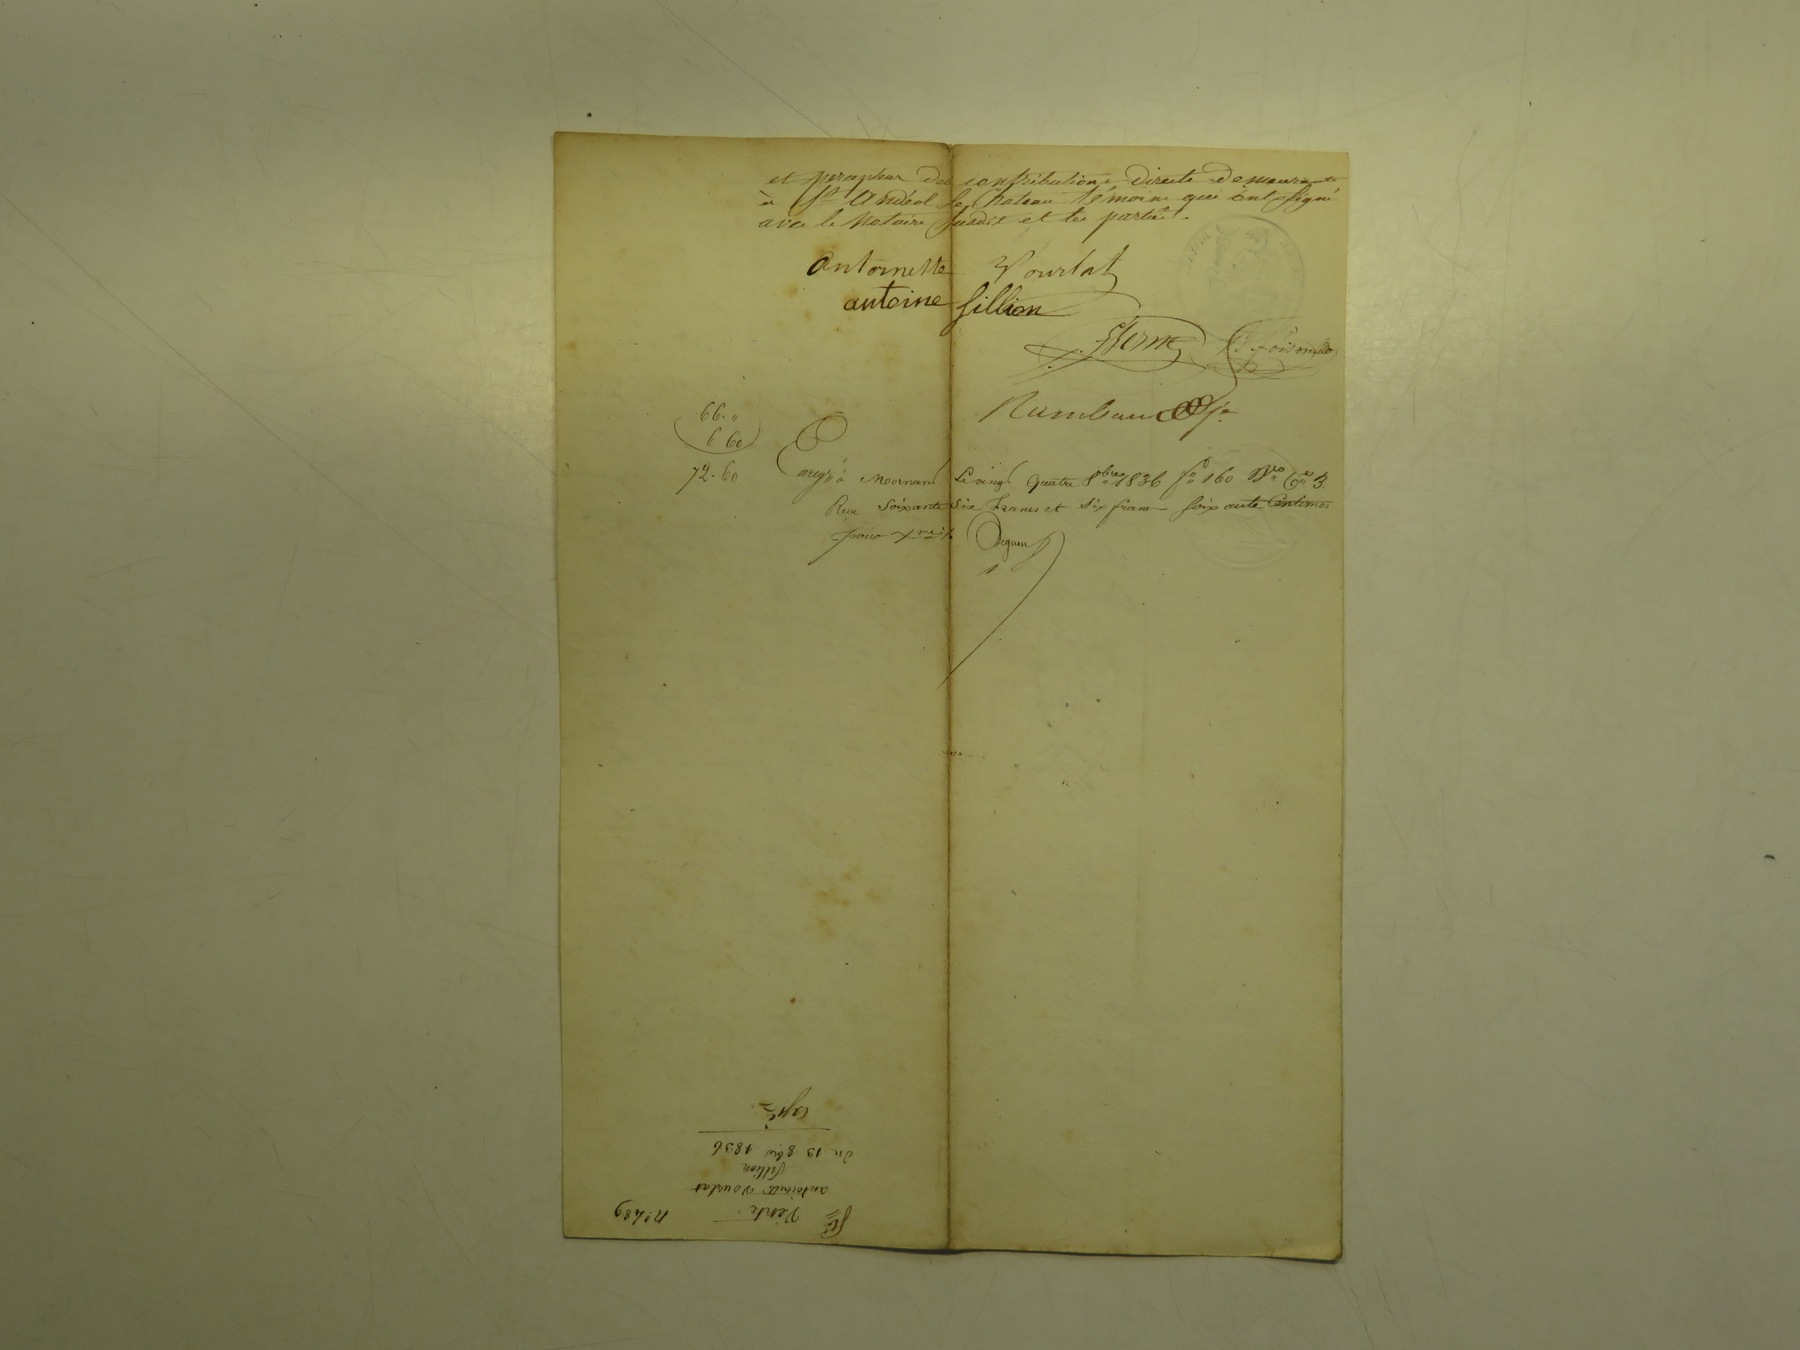 et percepteur des contributions directe demeurant
à St Andéol le Chateau témoins qui ont signé
avec le Notaire susdit et les parties.
Antoinette Vourlat
antoine fillion
Sterne
Rambaud
66. "
6 60
72. 60
Enregé à Mornant Le vingt quatre 8bre 1836 fo 160 Vo Ce 3
Reçu Soixante Six Francs et Six francs soixante Centimes
pour
No 489
Vente
antoinette Vourlat
fillion
du 13 8bre 1836
Expé